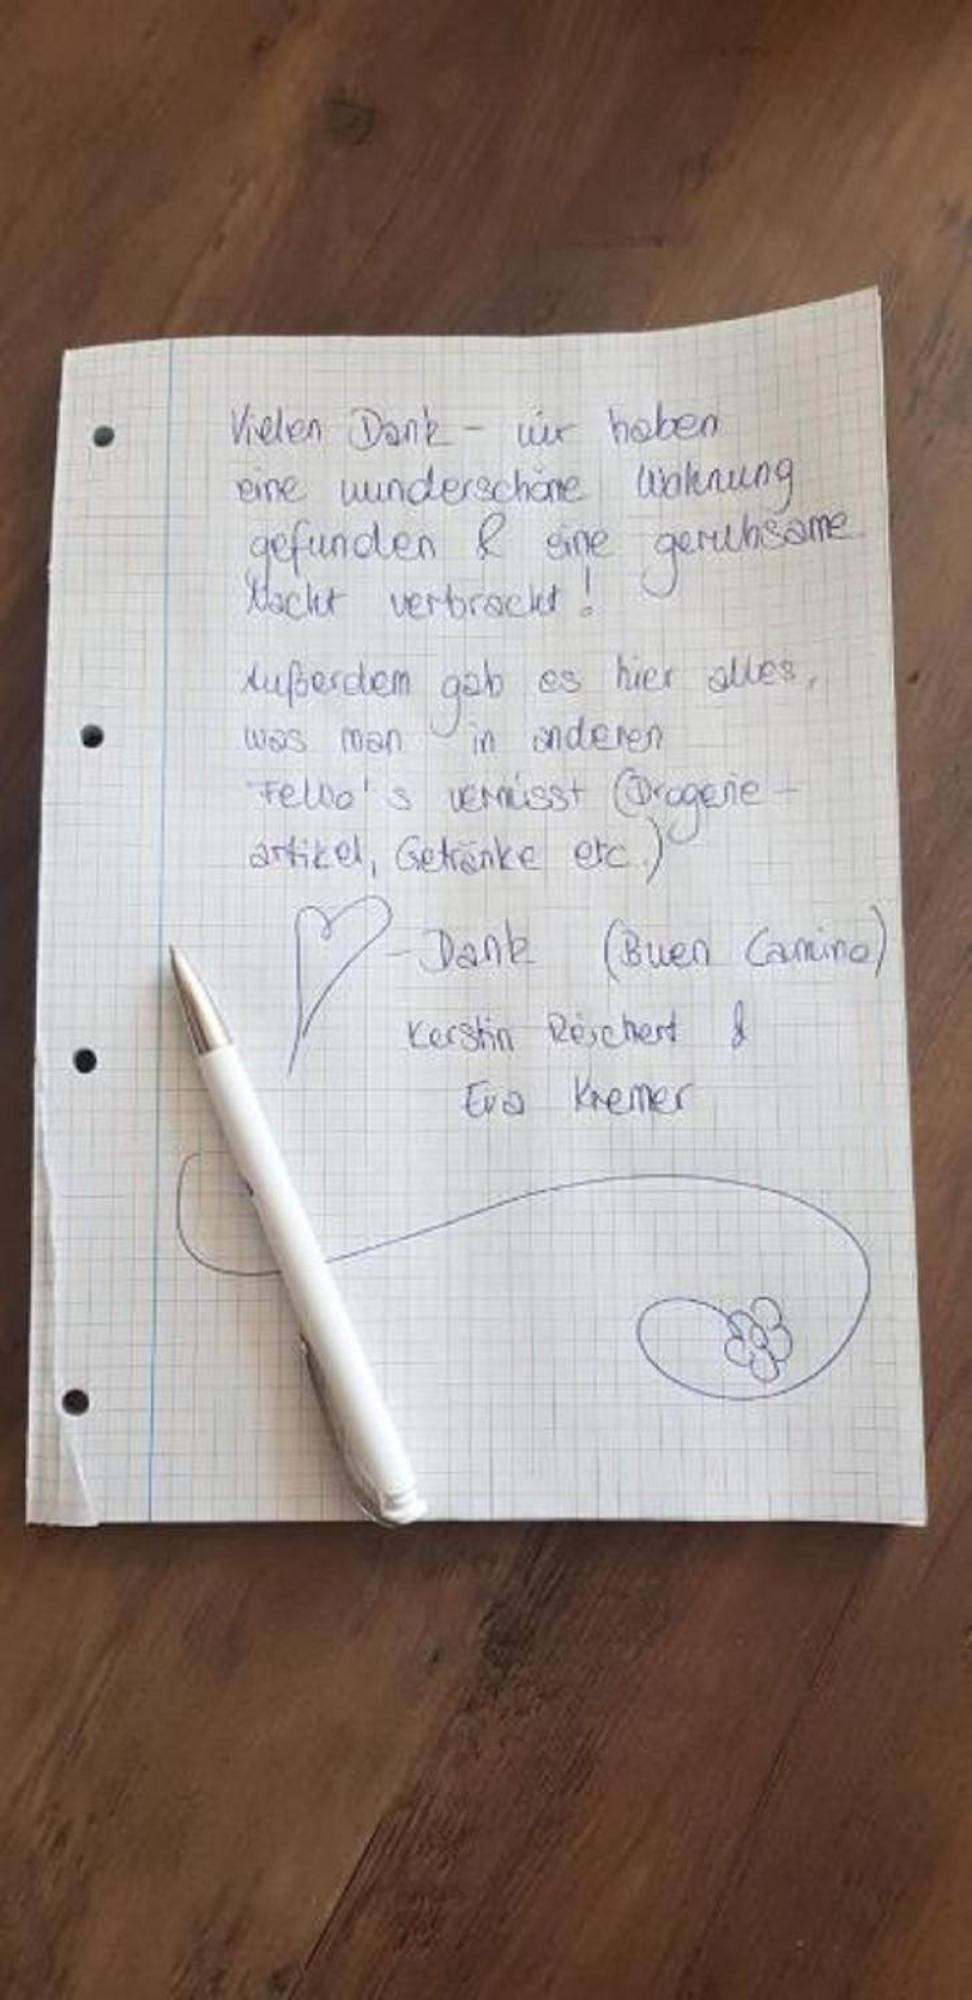 Vielen Dank - wir haben
eine wunderschöne Wohnung
gefunden & eine geruhsame
Nacht verbracht!
Außerdem gab es hier alles,
was man in anderen
FeWo's vermisst (Drogerie-
artikel, Getränke etc.)
-Dank (Buen Camino)
Kerstin Reichert &
Eva Kremer